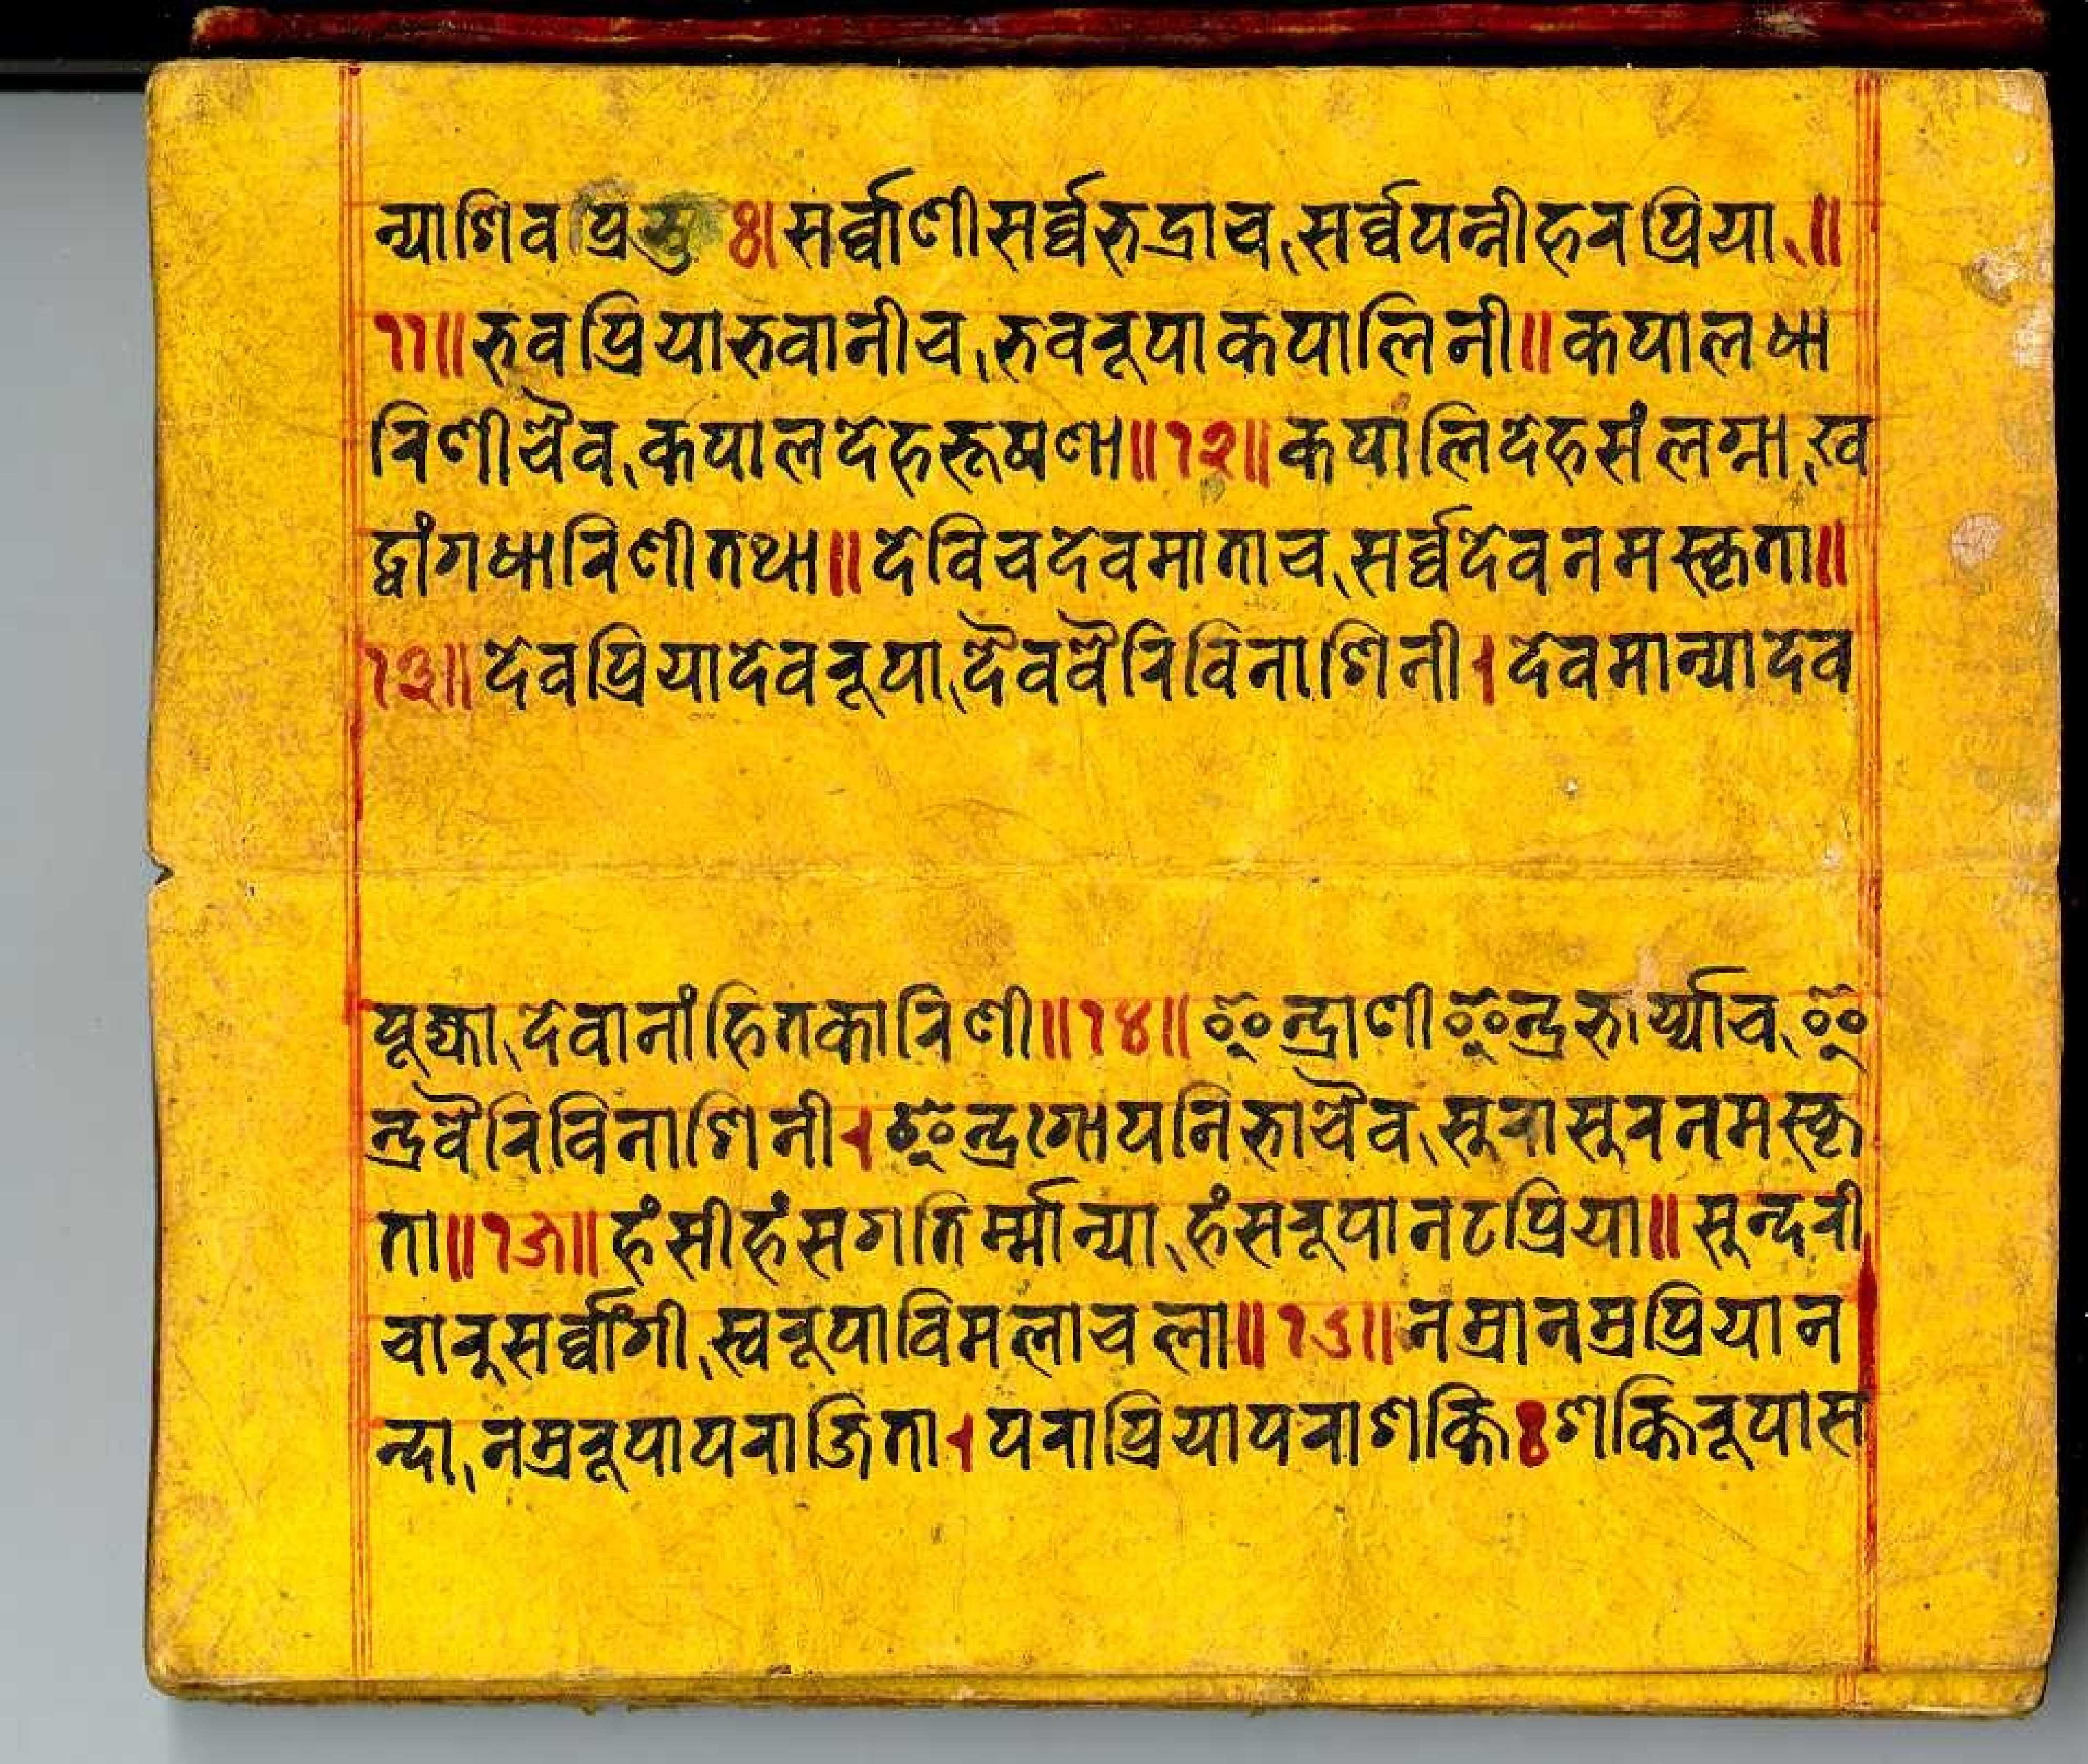 न्याशिव ः।सर्व्वाणीसर्व्वभद्राच,सर्व्वपत्नीहरप्रिया,॥
११॥भवप्रियाभवानीच,भवरूपाकपालिनी॥कपालधा
रिणीचैव,कपालदेहभूषणा॥१२॥कपालिदेहसंलग्ना,ख
ट्वांगधारिणीतथा॥देविचदेवमाताच,सर्व्वदेवनमस्कृता॥
१३॥देवप्रियादेवरूपा,दैववैरिविनाशिनी।देवमान्यादेव
पूज्या,देवानांहितकारिणी॥१४॥इन्द्राणीइन्द्रभार्य्याच,इ
न्द्रवैरिविनाशिनी।इन्द्रगोपनिभाचैव,सुरासुरनमस्कृ
ता॥१५॥हंसीहंसगतिर्म्मान्या,हंसरूपानटप्रिया॥सुन्दरी
चारुसर्व्वांगी,स्वरूपाविमलाचला॥१६॥नम्रानम्रप्रियान
न्दा,नम्ररूपापराजिता।पराप्रियापराशक्तिःशक्तिरूपास